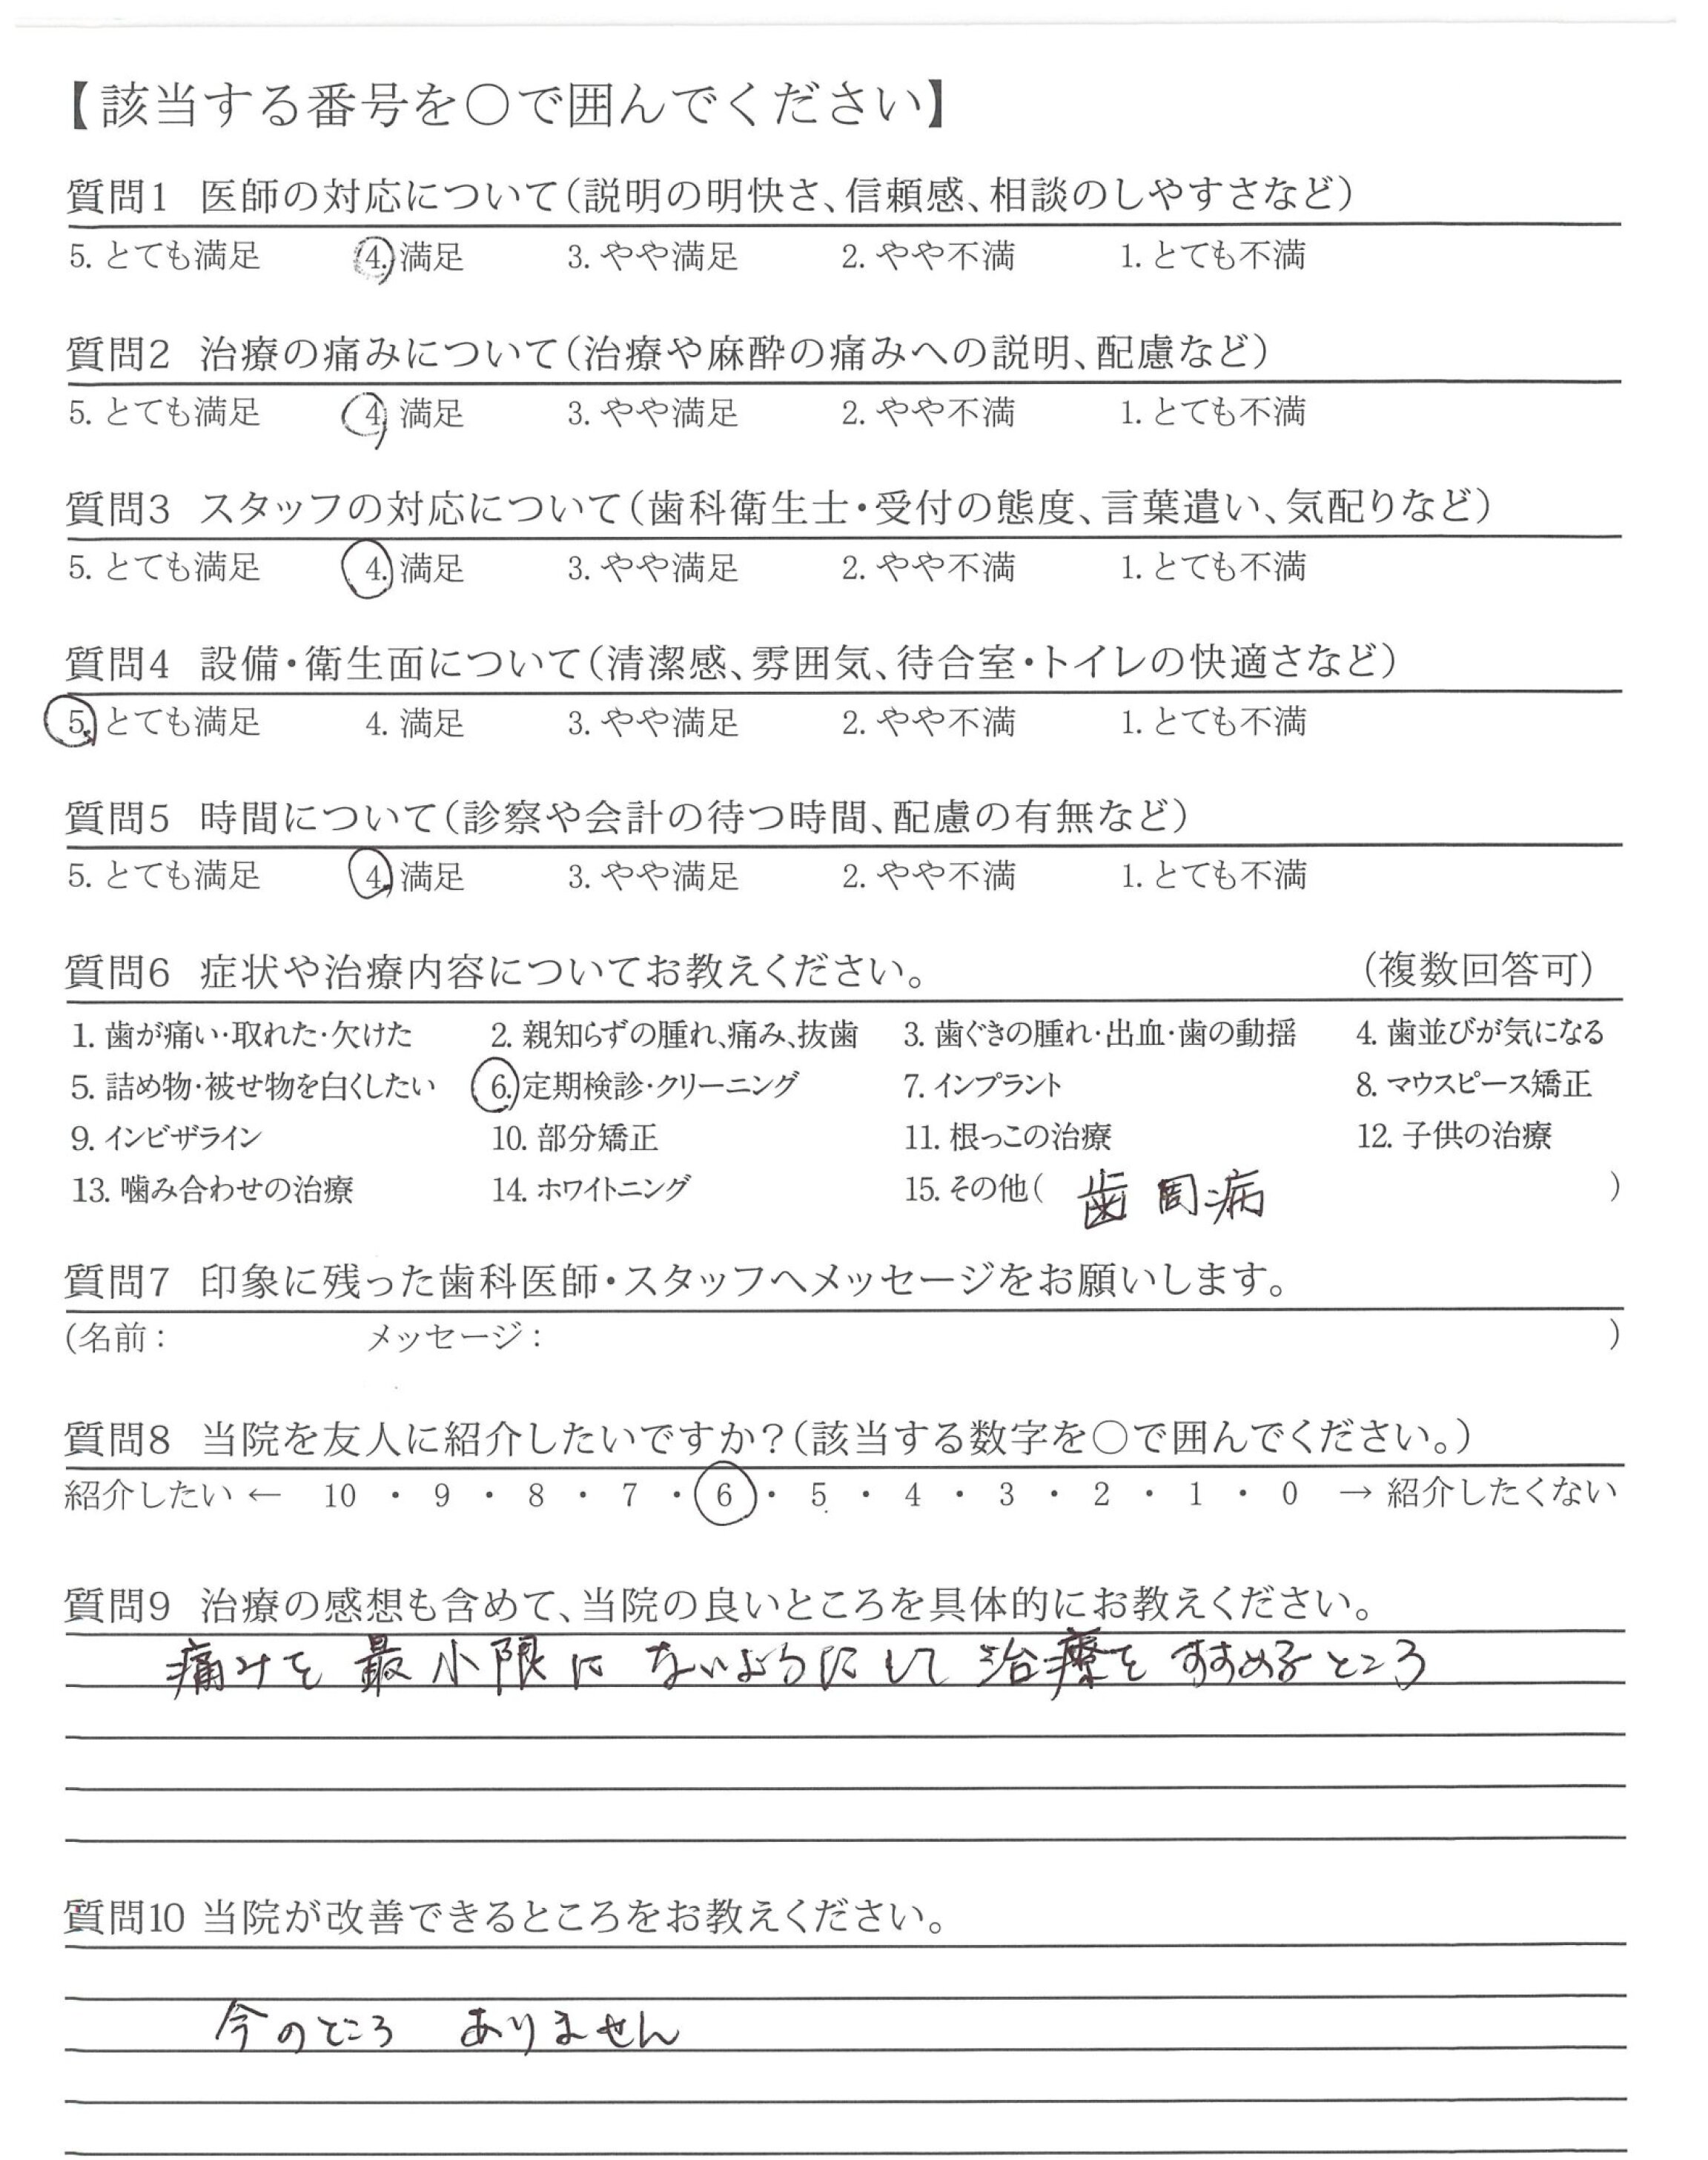 【該当する番号を○で囲んでください】
質問1 医師の対応について(説明の明快さ、信頼感、相談のしやすさなど)
5. とても満足 4. 満足 3. やや満足 2. やや不満 1. とても不満
質問2 治療の痛みについて(治療や麻酔の痛みへの説明、配慮など)
5. とても満足 4. 満足 3. やや満足 2. やや不満 1. とても不満
質問3 スタッフの対応について(歯科衛生士・受付の態度、言葉遣い、気配りなど)
5. とても満足 4. 満足 3. やや満足 2. やや不満 1. とても不満
質問4 設備・衛生面について(清潔感、雰囲気、待合室・トイレの快適さなど)
5. とても満足 4. 満足 3. やや満足 2. やや不満 1. とても不満
質問5 時間について(診察や会計の待つ時間、配慮の有無など)
5. とても満足 4. 満足 3. やや満足 2. やや不満 1. とても不満
質問6 症状や治療内容についてお教えください。 (複数回答可)
1. 歯が痛い・取れた・欠けた 2. 親知らずの腫れ、痛み、抜歯 3. 歯ぐきの腫れ・出血・歯の動揺 4. 歯並びが気になる
5. 詰め物・被せ物を白くしたい 6. 定期検診・クリーニング 7. インプラント 8. マウスピース矯正
9. インビザライン 10. 部分矯正 11. 根っこの治療 12. 子供の治療
13. 噛み合わせの治療 14. ホワイトニング 15. その他( 歯周病 )
質問7 印象に残った歯科医師・スタッフへメッセージをお願いします。
(名前: メッセージ: )
質問8 当院を友人に紹介したいですか?(該当する数字を○で囲んでください。)
紹介したい ← 10 ・ 9 ・ 8 ・ 7 ・ 6 ・ 5 ・ 4 ・ 3 ・ 2 ・ 1 ・ 0 → 紹介したくない
質問9 治療の感想も含めて、当院の良いところを具体的にお教えください。
痛みを 最小限に ないようにして 治療を すすめるところ
質問10 当院が改善できるところをお教えください。
今のところ ありません